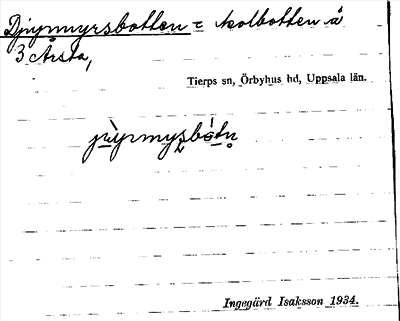 Djupmyrsbotten = kolbotten å
3 Årsta,
Tierps sn, Örbyhus hd, Uppsala län.
Ingegärd Isaksson 1934.